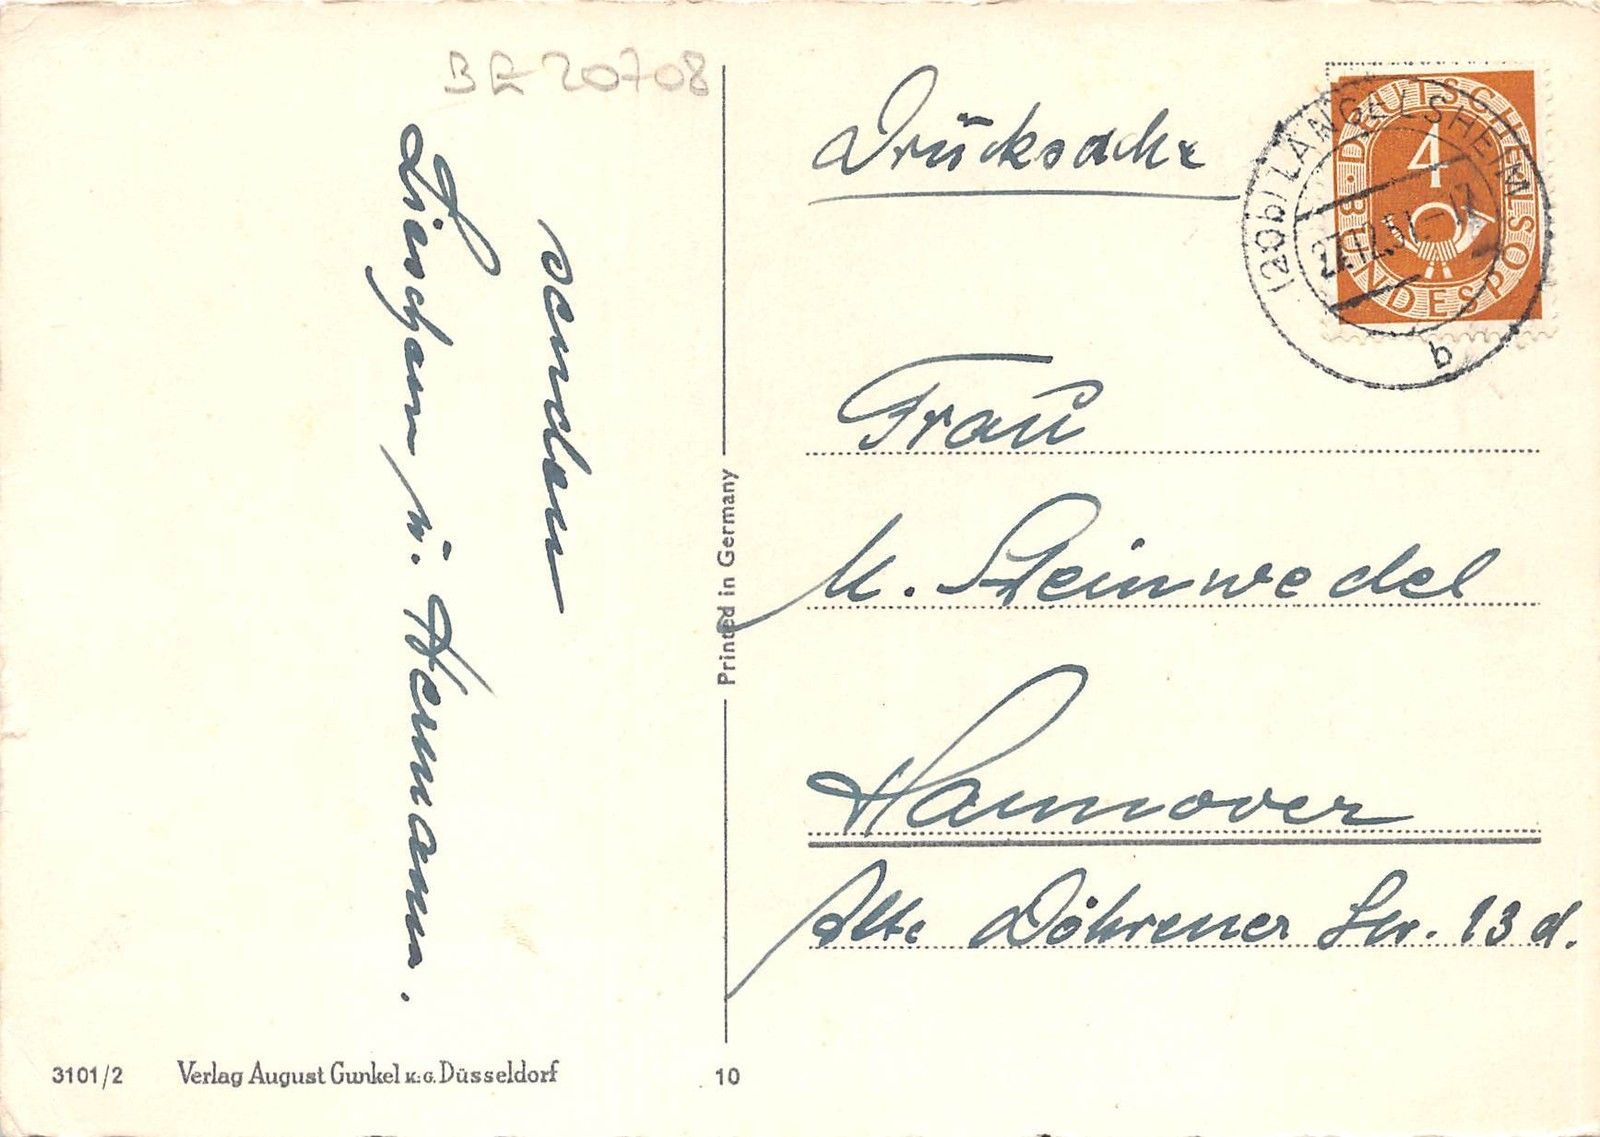 BE 20708
senden
Lieschen u. Hermann.
Drucksache
DEUTSCHE BUNDESPOST
4
(20b) LANGELSHEIM
27.12.51.-17
b
Frau
M. Steinwedel
Hannover
Alte Döhrener Str. 13 d.
Printed in Germany
3101/2 Verlag August Gunkel K.G. Düsseldorf 10